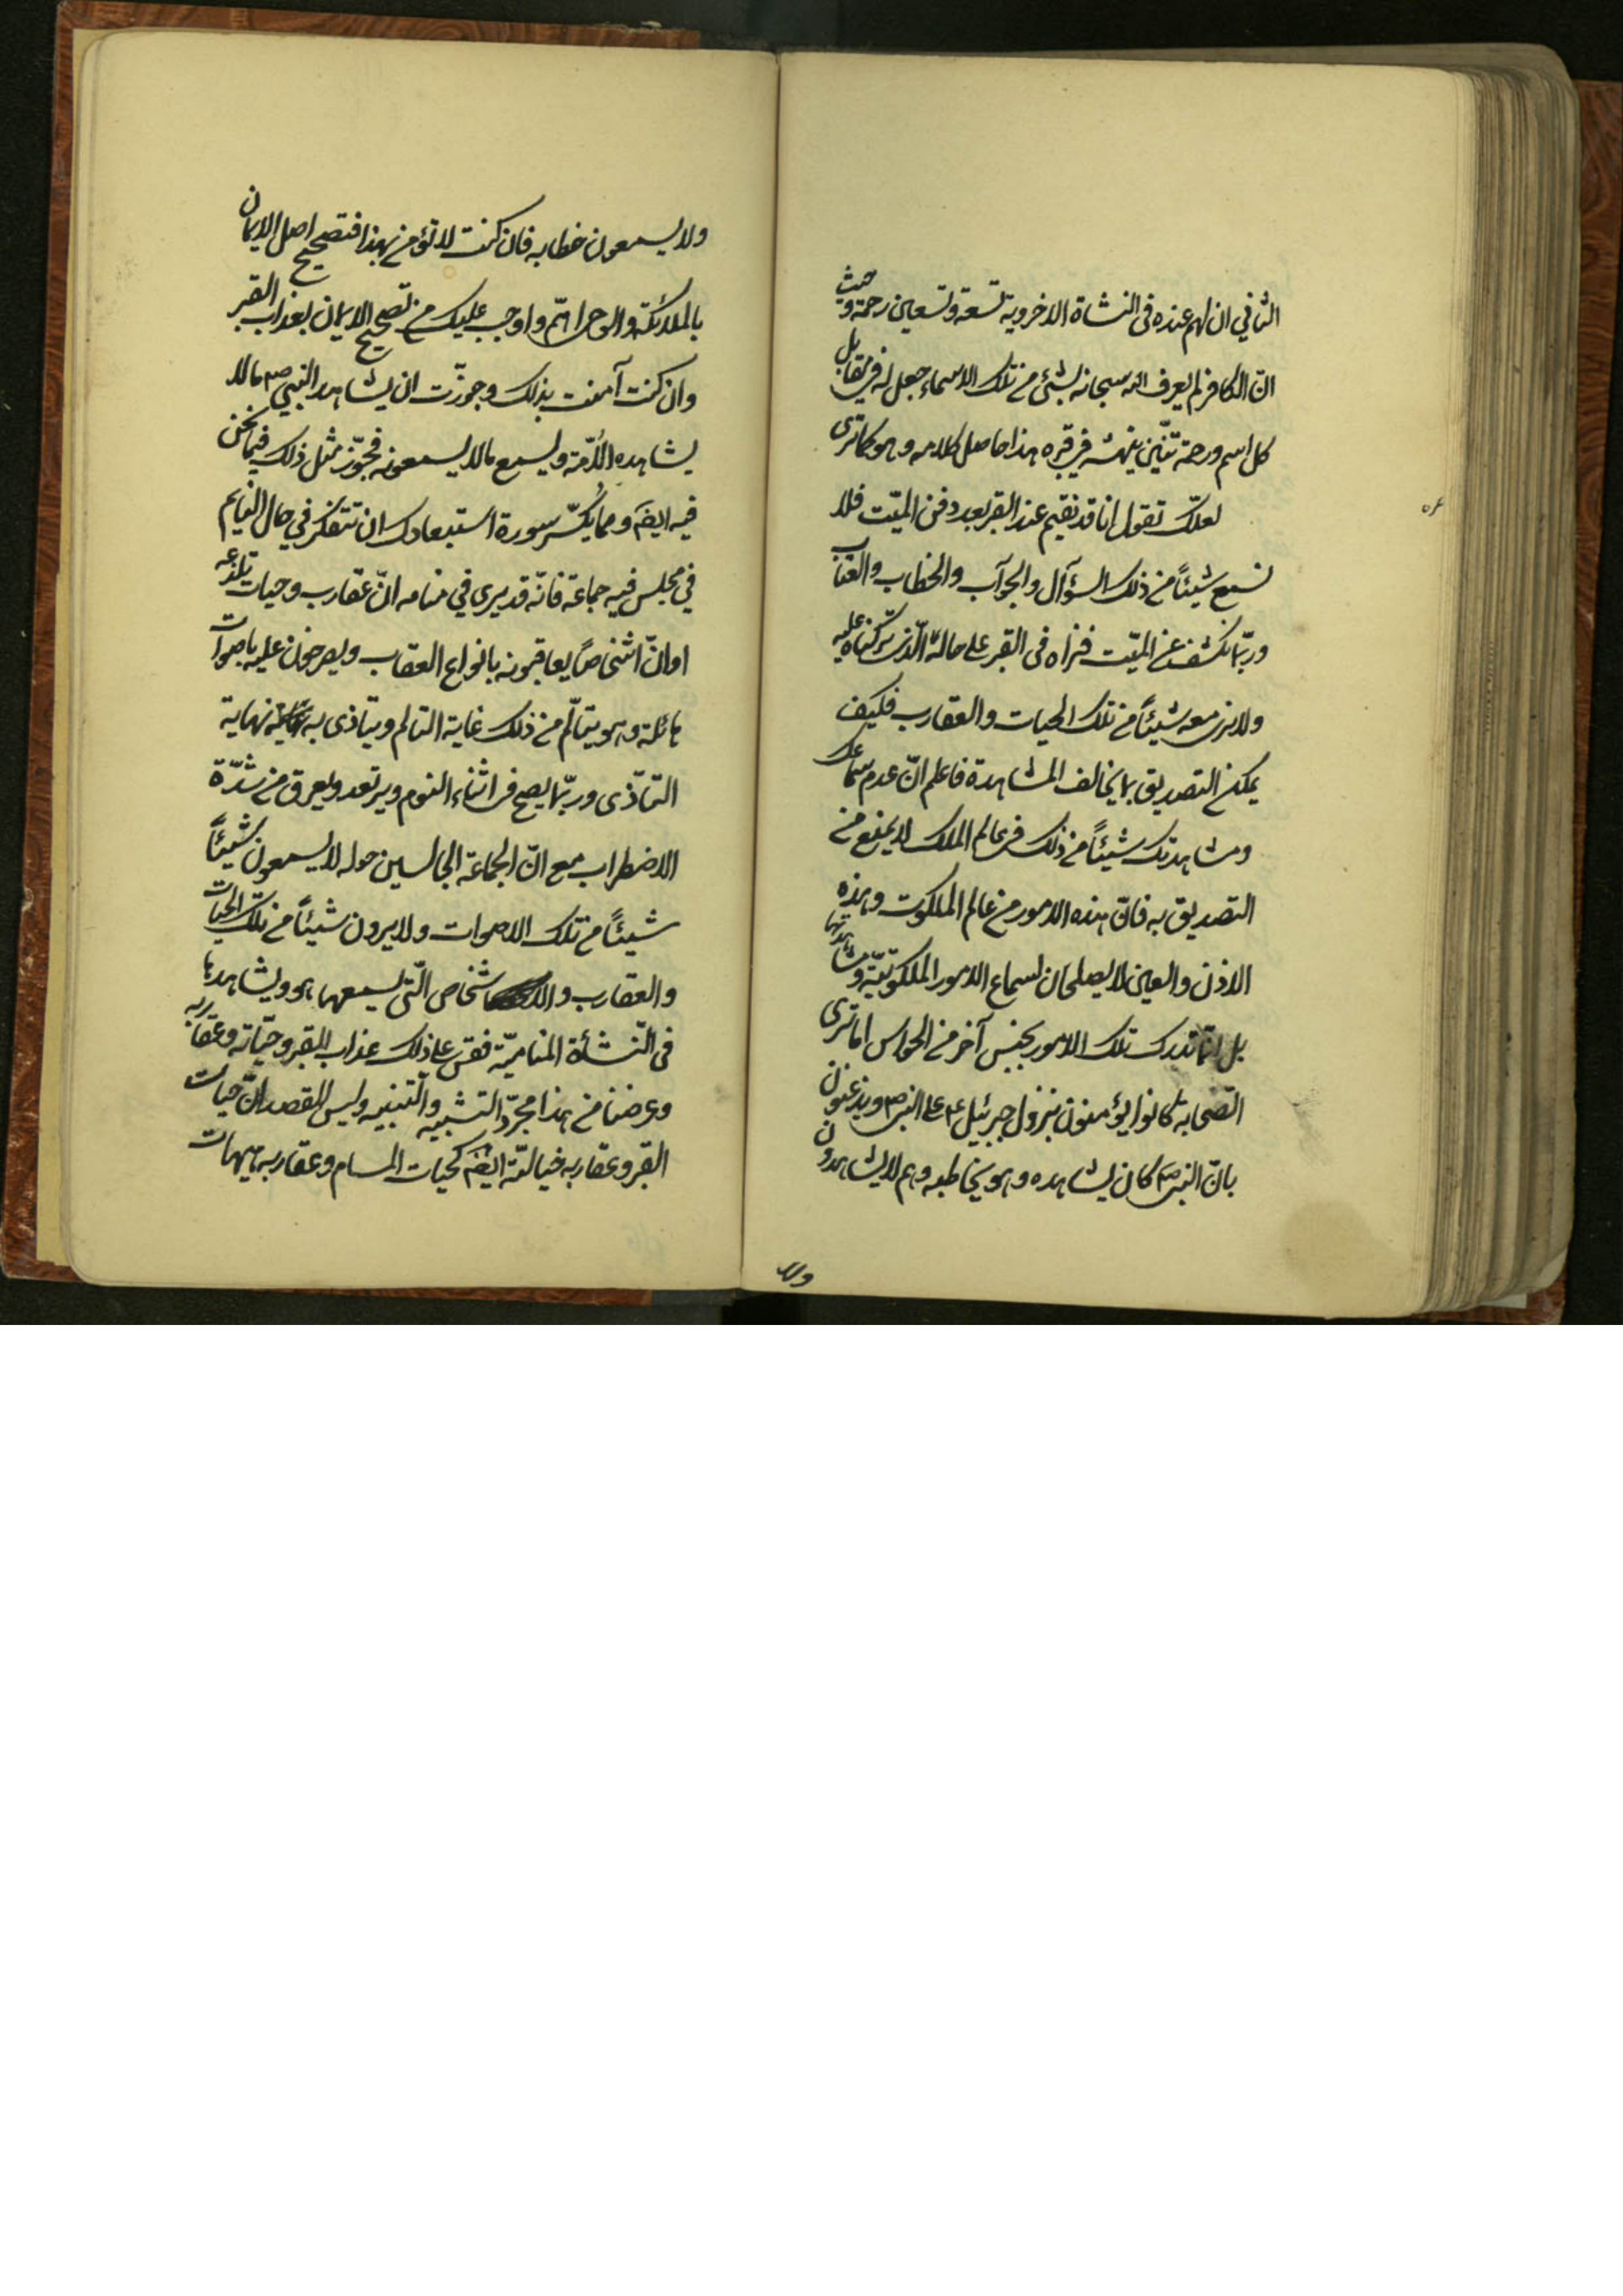 الثاني ان لهم عنده فى النشاة الاخروية تسعة وتسعين رحمة وحيث
انّ الكافر لم يعرف الله سبحانه بشئ من تلك الاسماء جعل له في مقابل
كل اسم ورحمة تنّين ينهشه في قبره هذا حاصل كلامه وهو كما ترى
لعلّك تقول انا قد نقيم عند القبر بعد دفن الميّت فلا
نسمع شيئاً من ذلك السؤال والجوآب والخطاب والعتاب
وربّما نكشف عن الميّت فنراه فى القبر على حاله الّذى تركناه عليه
ولا نرى معه شيئاً من تلك الحيات والعقارب فكيف
يمكن التصديق بما يخالف المشاهدة فاعلم انّ عدم سماعك
ومشاهدتك شيئاً من ذلك في عالم الملك لا يمنع من
التصديق به فانّ هذه الامور من عالم الملكوت وهذه
الاذن والعين لا يصلحان لسماع الامور الملكوتيّة ومشاهدتها
بل انّما تدرك تلك الامور بجنس آخر من الحواس اما ترى
الصّحابة كانوا يؤمنون بنزول جبرئيل ع على النبى ص ويذعنون
بانّ النبى ص كان يشاهده وهو يخاطبه وهم لا يشاهدون
ولا
ولا يسمعون خطابه فان كنت لا تؤمن بهذا فتصحيح اصل الايمان
بالملائكة والوحى اهمّ واوجب عليك من تصحيح الايمان بعذاب القبر
وان كنت آمنت بذلك وجوّزت ان يشاهد النبي ص ما لا
يشاهده الاُمّة ويسمع ما لا يسمعونه فجوّز مثل ذلك فيما نحن
فيه ايضَ ومما يكسّر سورة استبعادك ان تتفكر في حال النايم
في مجلس فيه جماعة فانّه قد يرى في منامه انّ عقارب وحيات تلدغه
او انّ اشخاصاً يعاقبونه بانواع العقاب ويصرخون عليه باصوات
هائلة وهو يتالّم من ذلك غاية التالم ويتاذى به نهاية
التاذّى وربّما يصح في اثناء النوم ويرتعد ويعرق من شدّة
الاضطراب مع انّ الجماعة الجالسين حوله لا يسمعون شيئاً
شيئاً من تلك الاصوات ولا يرون شيئاً من تلك الحيات
والعقارب والاشخاص الّتى يسمعها هو ويشاهدها
فى النّشأة المناميّة فقس على ذلك عذاب القبر وحيّاته وعقاربه
وغرضنا من هذا مجرّد التشبيه والتنبيه وليس القصد انّ حيات
القبر وعقاربه خيالتّة ايضَ كحيات المنام وعقاربه هيهات